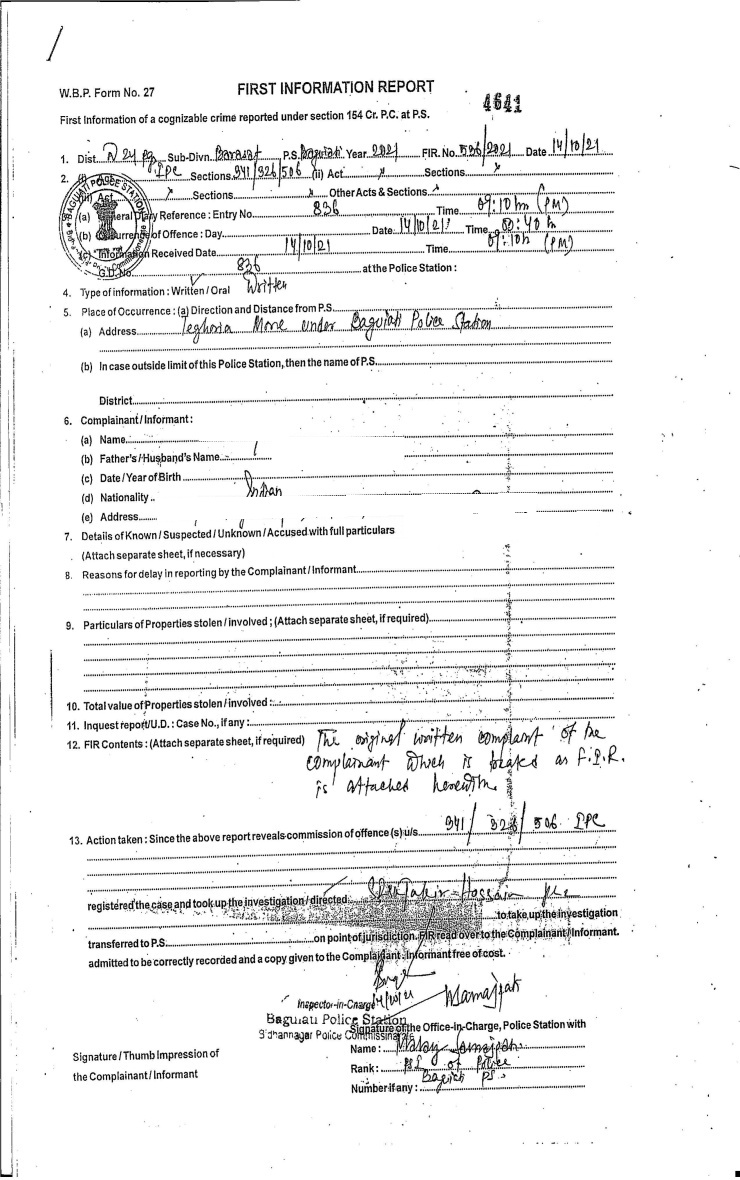 W.B.P. Form No. 27
FIRST INFORMATION REPORT
4641
First Information of a cognizable crime reported under section 154 Cr. P.C. at P.S.
1. Dist. N 24 pgs Sub-Divn. Barasat P.S. Baguiati Year 2021 FIR. No. 536/2021 Date 14/10/21
2. (i) Act IPC Sections 341/326/506 (ii) Act x Sections x
(iii) Act x Sections x Other Acts & Sections x
(a) General Diary Reference : Entry No. 836 Time 09:10 hrs (PM)
(b) Occurrence of Offence : Day Date 14/10/21 Time 00:40 hrs
(c) Information Received Date 14/10/21 Time 09:10 h (PM)
G.D. No. 836 at the Police Station :
BAGUIATI POLICE STATION
4. Type of information : Written / Oral Written
5. Place of Occurrence : (a) Direction and Distance from P.S.
(a) Address Teghoria More under Baguiati Police Station
(b) In case outside limit of this Police Station, then the name of P.S.
District
6. Complainant / Informant :
(a) Name
(b) Father's / Husband's Name
(c) Date / Year of Birth
(d) Nationality .. Indian
(e) Address
7. Details of Known / Suspected / Unknown / Accused with full particulars
(Attach separate sheet, if necessary)
8. Reasons for delay in reporting by the Complainant / Informant
9. Particulars of Properties stolen / involved ; (Attach separate sheet, if required)
10. Total value of Properties stolen / involved :
11. Inquest report/U.D. : Case No., if any :
12. FIR Contents : (Attach separate sheet, if required) The original written complaint of the
complainant which is treated as F.I.R.
is attached herewith.
13. Action taken : Since the above report reveals commission of offence (s) u/s 341/326/506 IPC
registered the case and took up the investigation / directed Jakir Hossain
to take up the investigation
transferred to P.S. on point of jurisdiction. FIR read over to the Complainant / Informant.
admitted to be correctly recorded and a copy given to the Complainant : Informant free of cost.
14/10/21
Inspector-in-Charge
Baguiati Police Station
Bidhannagar Police Commissionerate
Signature of the Office-In-Charge, Police Station with
Signature / Thumb Impression of
the Complainant / Informant
Name : Malay
Rank : of Police
Baguiati PS.
Number if any :